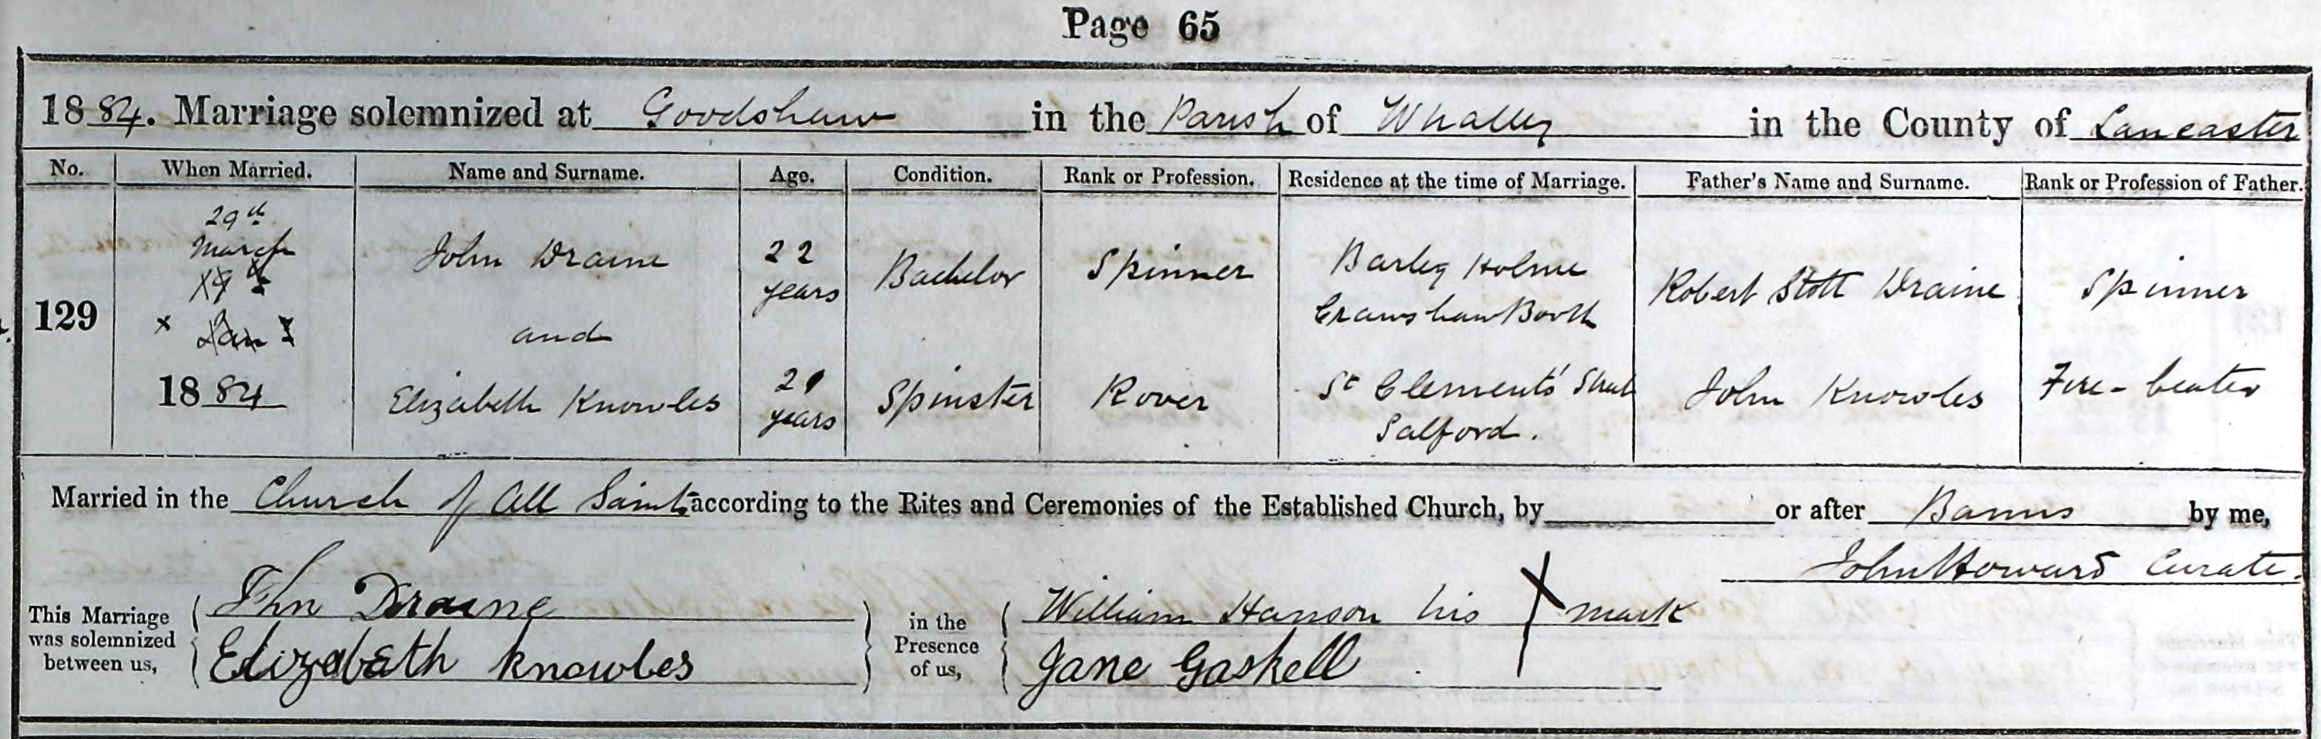 Page 65
1884. Marriage solemnized at Goodshaw in the Parish of Whalley in the County of Lancaster
No. When Married. Name and Surname. Age. Condition. Rank or Profession. Residence at the time of Marriage. Father's Name and Surname. Rank or Profession of Father.
129
29th
March
Jan
1884
John Draine
and
Elizabeth Knowles
22
years
21
years
Bachelor
Spinster
Spinner
Rover
Barley Holme
Crawshaw Booth
St Clements' Street
Salford.
Robert Stott Draine
John Knowles
Spinner
Fire-beater
Married in the Church of All Saints according to the Rites and Ceremonies of the Established Church, by or after Banns by me,
John Howard Curate.
This Marriage
was solemnized
between us,
John Draine
Elizabeth Knowles
in the
Presence
of us,
William Hanson his X mark
Jane Gaskell